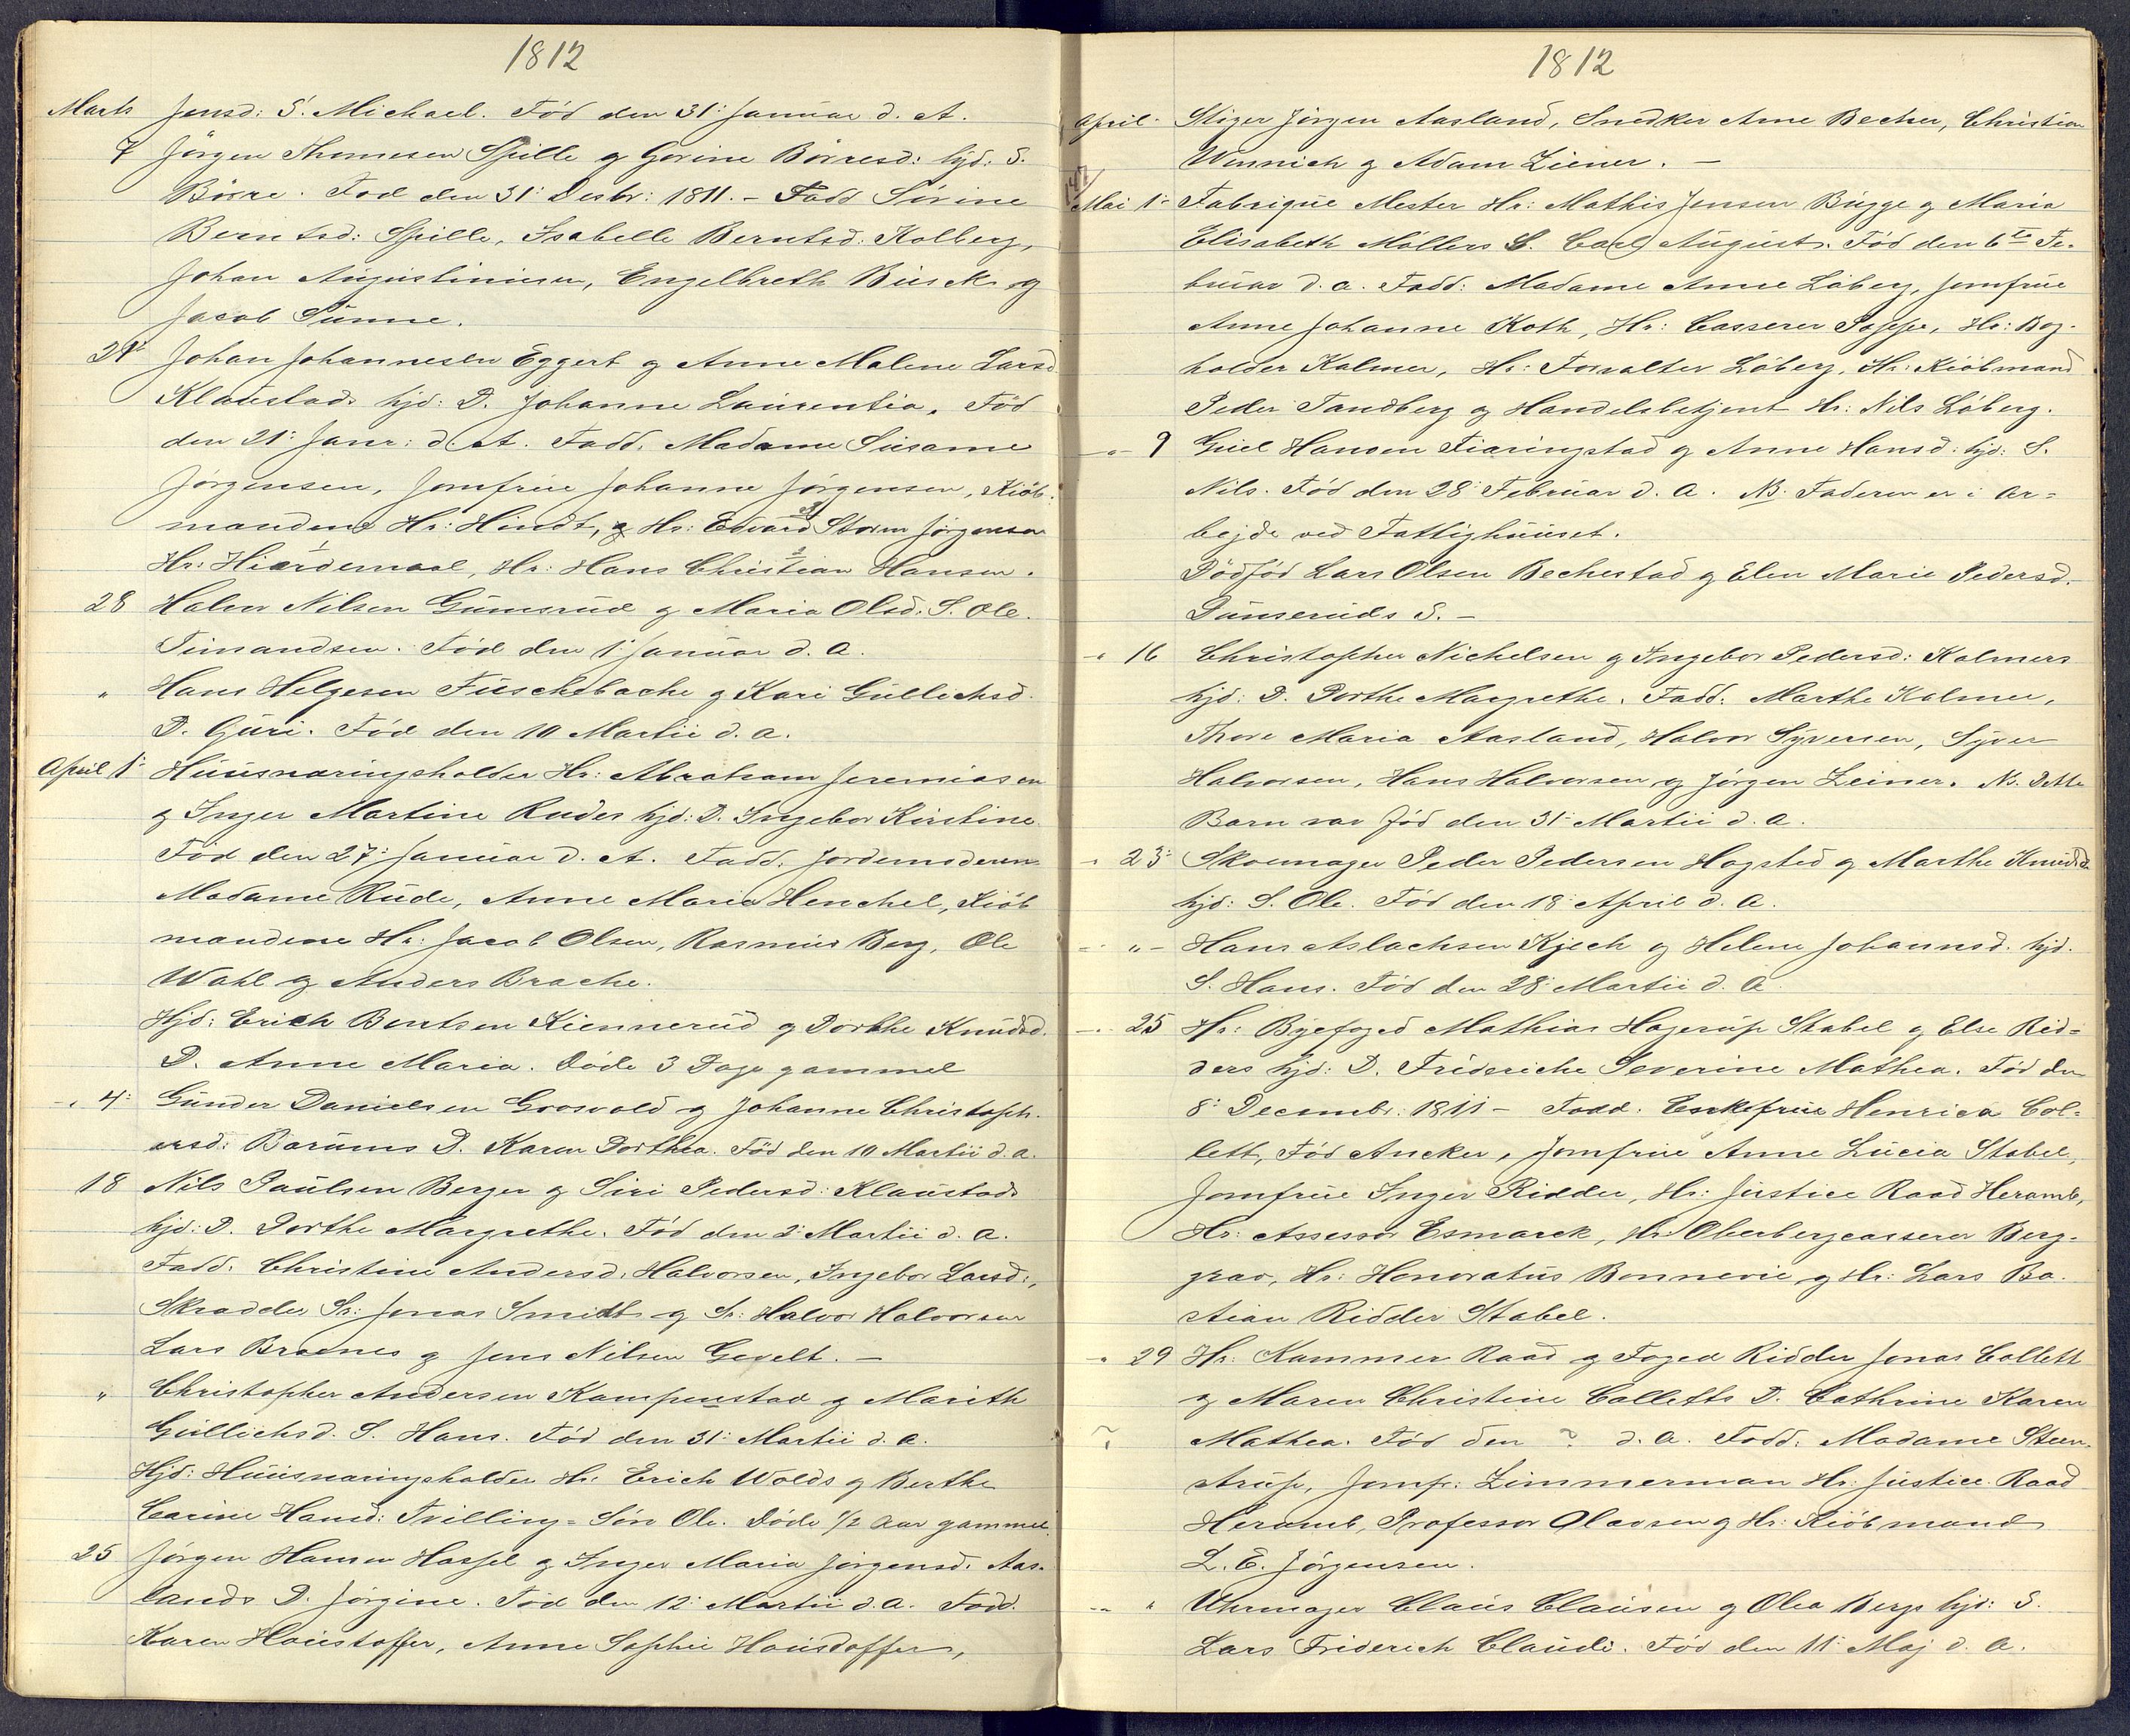 1812
Marts Jensd: S. Michael. Fød den 31: Januar d. A.
7 Jörgen Thomesen Spille og Gorine Börresd: hjd: S.
Börre. Fød den 31: Desbr: 1811. - Fadd Sörine
Berntsd: Spille, Isabelle Berntsd: Kolberg,
Johan Augustinussen, Engelbreth Busck og
Jacob Sunne.
21: Johan Johannesen Eggert og Anne Malene Larsd
Klaustads hjd: D. Johanne Laurentia. Fød
den 21: Janr: d. A. Fadd. Madame Susanne
Jörgensen, Jomfrue Johanne Jörgensen, Kiöb-
mandene Hr: Hindt, og Hr: Edvard Storm Jörgensen
Hr: Hierdemaal, Hr: Hans Christian Hansen.
28 Halvor Nilsen Gumsrud og Maria Olsd: S. Ole.
Timandsen. Fød den 1: Januar d. A.
" Hans Helgesen Fuschebache og Kari Gullichsd.
D. Guri. Fød den 10 Martii d. a.
April 1: Huusnæringsholder Hr: Abraham Jeremiasen
og Inger Martine Rudes hjd: D. Ingebor Kirstine
Fød den 27: Januar d. A. Fadd. Jordemoderen
Madame Rude, Anne Maria Henchel, Kiöb
mandene Hr: Jacob Olsen, Rasmus Berg, Ole
Wahl og Anders Brache.
Hjd: Erich Bentsen Kiennerud og Dorthe Knudsd.
D. Anne Maria. Døde 3 Dage gammel
-" 4: Gunder Danielsen Grosvold og Johanne Christoph-
ersd: Barums D. Karen Dorthea. Fød den 10 Martii d. a.
18 Nils Paulsen Berger og Siri Pedersd: Klaustads
hjd: D. Dorthe Margrethe. Fød den 2: Martii d. a.
Fadd. Christine Andersd. Halvorsen, Ingebor Larsd:,
Skradder Sr: Jonas Smidt og Sr: Halvor Halvorsen
Lars Braenes og Jens Nilsen Gevelt. -
" Christopher Andersen Kampenstad og Marith
Gullichsd. S. Hans. Fød den 31: Martii d. a.
Hjd: Huusnæringsholder Hr: Erich Wolds og Berthe
Carine Hansd: Tvilling-Søn Ole. Døde 1/2 Aar gammel.
25 Jörgen Hansen Hassel og Inger Maria Jörgensd: Aas-
lands D. Jörgine. Fød den 12: Martii d. a. Fadd.
Karen Hausdoffer, Anne Sophie Hausdoffer,
1812
April. Stiger Jörgen Aasland, Snedker Arne Becher, Christian
Wennich og Adam Ziener. -
Mai 1: Fabrique Mester Hr: Mathis Jensen Bugge og Maria
Elisabeth Möllers S. Carl August. Fød den 6te Fe-
bruar d. a. Fadd: Madame Anne Löberg, Jomfrue
Anne Johanne Koth, Hr: Casserer Poppe, Hr: Bog-
holder Kalmer, Hr: Forvalter Löberg, Hr: Kiöbmand
Peder Tandberg og Handelsbetjent Hr: Nils Löberg.
-"- 9 Giuel Hansen Fiaringstad og Anne Hansd: hjd: S.
Nils. Fød den 28: Februar d. A. NB. Faderen er i Ar-
bejde ved Fattighuuset.
Dödfød Lars Olsen Bechestad og Elen Marie Pedersd.
Dunseruds S. -
-" 16 Christopher Nichelsen og Ingebor Pedersd: Kalmers
hjd: D. Dorthe Margrethe. Fadd. Marthe Kalmer,
Thore Maria Aasland, Halvor Syversen, Syver
Halvorsen, Hans Halvorsen og Jörgen Zeiner. NB. Dette
Barn var fød den 31: Martii d. a.
-" 23: Skoemager Peder Pedersen Hagsted og Marthe Knudsd
hjd: S. Ole. Fød den 18: April d. A.
- "- Hans Aslachsen Kjech og Helene Johannsd. hjd.
S. Hans. Fød den 28: Martii d. A.
-" 25 Hr: Byefoged Mathias Hagerup Stabel og Else Rid-
ders hjd: D. Frideriche Severine Mathea. Fød den
8: Decembr. 1811 - Fadd. Enkefrue Henrica Col-
lett, Fød Ancker, Jomfrue Anne Lucia Stabel,
Jomfrue Inger Ridder, Hr: Justice Raad Heramb,
Hr: Assessor Esmarck, Hr: Oberbergcasserer Berg-
grav, Hr: Honoratus Bonnevie og Hr: Lars Ba-
stian Ridder Stabel.
-" 29 Hr: Kammer Raad og Foged Ridder Jonas Collett
og Maren Christine Colletts D. Cathrine Karen
? Mathea. Fød den ? d. A. Fadd. Madame Steen-
strup, Jomfr: Zimmerman Hr: Justice Raad
Heramb, Professor Olavsen og Hr: Kiöbmand
L. C. Jörgensen.
-- " Uhrmager Claus Clausen og Olea Bergs hjd: S.
Lars Friderich Claudi. Fød den 11: Maj d. A.